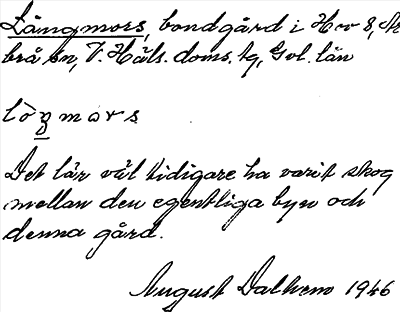 Långmors, bondgård i Hov 8, Ar
brå sn, V. Häls. doms. tg, Gvl. län
lòŋmɷrs
Det lär väl tidigare ha varit skog
mellan den egentliga byn och
denna gård.
August Dalhem 1946